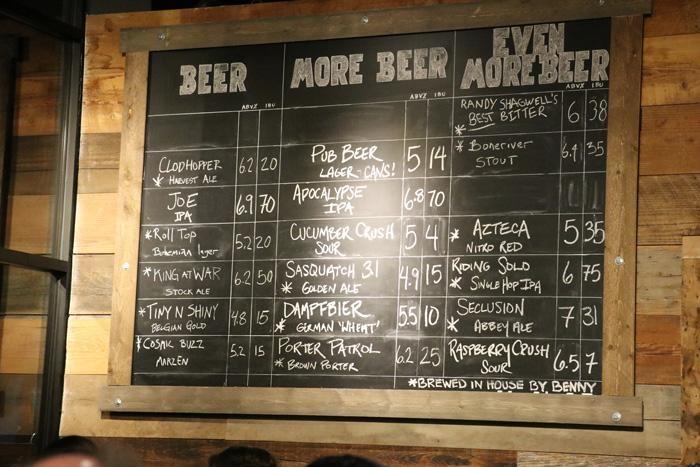 BEER
ABV% IBU
CLODHOPPER 6.2 20
* HARVEST ALE
JOE 6.9 70
IPA
* ROLL TOP 5.2 20
BOHEMIAN lager
* KING AT WAR 6.2 50
STOCK ALE
* TINY N SHINY 4.8 15
BELGIAN GOLD
* COSMIC BUZZ 5.2 15
MARZEN
MORE BEER
ABV% IBU
PUB BEER 5 14
LAGER-CANS!
APOCALYPSE 6.8 70
IPA
CUCUMBER CRUSH 5 4
SOUR
SASQUATCH 3.1 4.9 15
* GOLDEN ALE
DAMPFBIER 5.5 10
* GERMAN 'WHEAT'
PORTER PATROL 6.2 25
* BROWN PORTER
EVEN
MORE BEER
ABV% IBU
RANDY SHAGWELL'S 6 38
* BEST BITTER
* Boneriver 6.4 35
STOUT
* AZTECA 5 35
NITRO RED
RIDING SOLO 6 75
* SINGLE HOP IPA
SECLUSION 7 31
* ABBEY ALE
RASPBERRY CRUSH 6.5 7
SOUR
*BREWED IN HOUSE BY BENNY